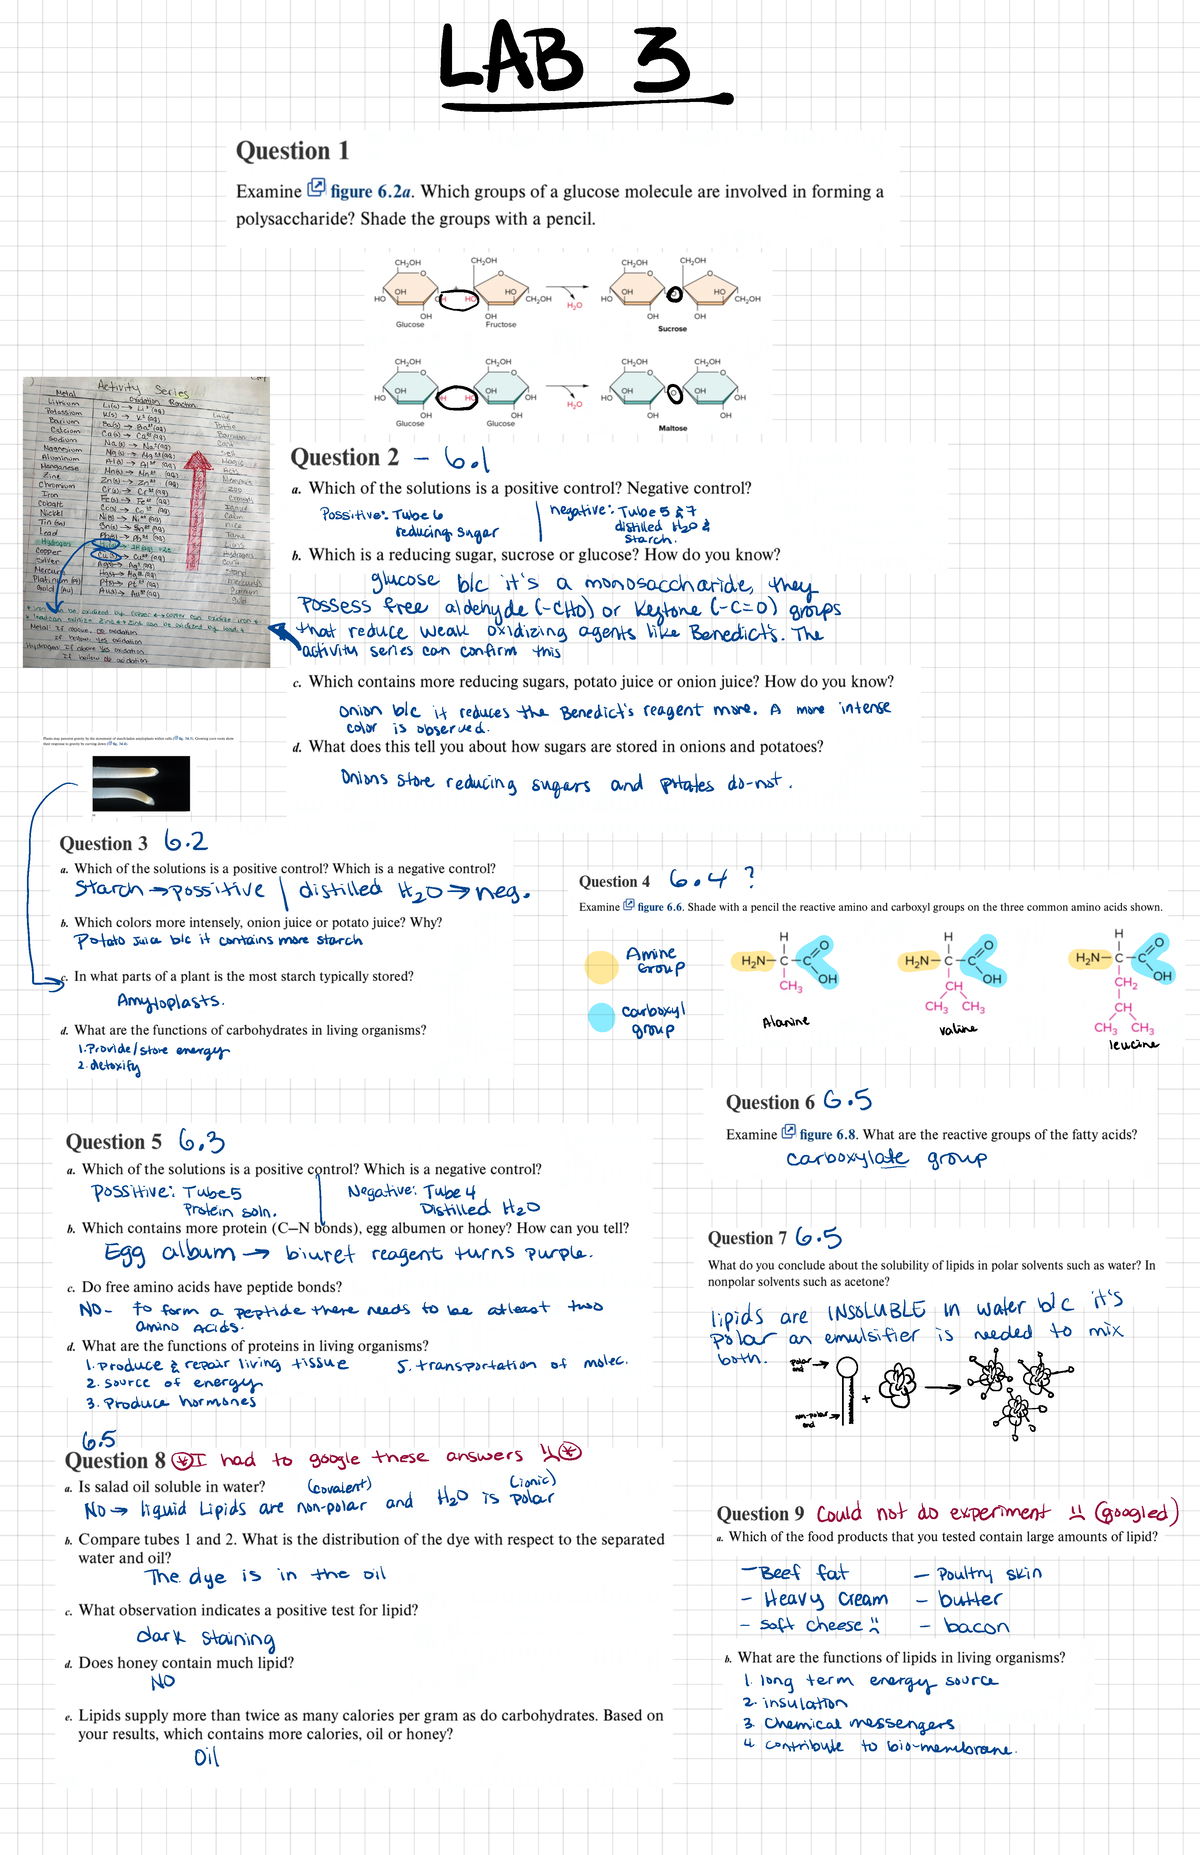 LAB 3
Question 1
Examine figure 6.2a. Which groups of a glucose molecule are involved in forming a
polysaccharide? Shade the groups with a pencil.
CH₂OH CH₂OH CH₂OH CH₂OH
O O O O
HO OH OH HO HO CH₂OH H₂O HO OH O HO CH₂OH
OH OH OH OH
Glucose Fructose Sucrose
CH₂OH CH₂OH CH₂OH CH₂OH
O O O O
HO OH H HO OH OH H₂O HO OH O OH OH
OH OH OH OH
Glucose Glucose Maltose
Activity Series
Metal Oxidation Reaction
Lithium Li(s) → Li⁺(aq)
Potassium K(s) → K⁺(aq)
Barium Ba(s) → Ba²⁺(aq)
Calcium Ca(s) → Ca²⁺(aq)
Sodium Na(s) → Na⁺(aq)
Magnesium Mg(s) → Mg²⁺(aq)
Aluminum Al(s) → Al³⁺(aq)
Manganese Mn(s) → Mn²⁺(aq)
Zinc Zn(s) → Zn²⁺(aq)
Chromium Cr(s) → Cr³⁺(aq)
Iron Fe(s) → Fe²⁺(aq)
Cobalt Co(s) → Co²⁺(aq)
Nickel Ni(s) → Ni²⁺(aq)
Tin (Sn) Sn(s) → Sn²⁺(aq)
Lead Pb(s) → Pb²⁺(aq)
Hydrogen
Copper Cu(s) → Cu²⁺(aq)
Silver Ag(s) → Ag⁺(aq)
Mercury Hg(s) → Hg²⁺(aq)
Platinum (Pt) Pt(s) → Pt²⁺(aq)
Gold (Au) Au(s) → Au³⁺(aq)
Metal: If above, no oxidation
If below, yes oxidation
Hydrogen: If above yes oxidation
If below no oxidation
Question 2 - 6.1
a. Which of the solutions is a positive control? Negative control?
Possitive: Tube 6 negative: Tube 5 & 7
reducing sugar distilled H₂O &
starch.
b. Which is a reducing sugar, sucrose or glucose? How do you know?
glucose b/c it's a monosaccharide, they
Possess free aldehyde (-CHO) or Keytone (-C=O) groups
that reduce weak oxidizing agents like Benedict's. The
activity series can confirm this
c. Which contains more reducing sugars, potato juice or onion juice? How do you know?
onion b/c it reduces the Benedict's reagent more. A more intense
color is observed.
d. What does this tell you about how sugars are stored in onions and potatoes?
Onions store reducing sugars and potates do-not.
Plants may perceive gravity by the movement of starch-laden amyloplasts within cells
their response to gravity by curving down
Question 3 6.2
a. Which of the solutions is a positive control? Which is a negative control?
Starch → possitive | distilled H₂O → neg.
b. Which colors more intensely, onion juice or potato juice? Why?
Potato Juice b/c it contains more starch
c. In what parts of a plant is the most starch typically stored?
Amyloplasts.
d. What are the functions of carbohydrates in living organisms?
1. Provide/store energy
2. detoxify
Question 4 6.4 ?
Examine figure 6.6. Shade with a pencil the reactive amino and carboxyl groups on the three common amino acids shown.
Amine
Group
carboxyl
group
H H H
H₂N-C-C O H₂N-C-C O H₂N-C-C O
OH OH OH
CH₃ CH CH₂
CH₃ CH₃ CH
CH₃ CH₃
Alanine valine leucine
Question 5 6.3
a. Which of the solutions is a positive control? Which is a negative control?
Possitive: Tube 5 Negative: Tube 4
Protein soln. Distilled H₂O
b. Which contains more protein (C–N bonds), egg albumen or honey? How can you tell?
Egg album → biuret reagent turns purple.
c. Do free amino acids have peptide bonds?
NO- to form a peptide there needs to be atleast two
amino Acids.
d. What are the functions of proteins in living organisms?
1. Produce & repair living tissue 5. transportation of molec.
2. source of energy
3. Produce hormones
Question 6 6.5
Examine figure 6.8. What are the reactive groups of the fatty acids?
carboxylate group
Question 7 6.5
What do you conclude about the solubility of lipids in polar solvents such as water? In
nonpolar solvents such as acetone?
lipids are INSOLUBLE in water b/c it's
polar an emulsifier is needed to mix
both.
polar
end
+
non-polar
end
6.5
Question 8 * I had to google these answers *
a. Is salad oil soluble in water? (covalent) (ionic)
NO → liquid Lipids are non-polar and H₂O is polar
b. Compare tubes 1 and 2. What is the distribution of the dye with respect to the separated
water and oil?
The dye is in the oil
c. What observation indicates a positive test for lipid?
dark staining
d. Does honey contain much lipid?
NO
e. Lipids supply more than twice as many calories per gram as do carbohydrates. Based on
your results, which contains more calories, oil or honey?
Oil
Question 9 Could not do experiment (googled)
a. Which of the food products that you tested contain large amounts of lipid?
- Beef fat - Poultry skin
- Heavy cream - butter
- soft cheese - bacon
b. What are the functions of lipids in living organisms?
1. long term energy source
2. insulation
3. Chemical messengers
4 contribute to bio-membrane.